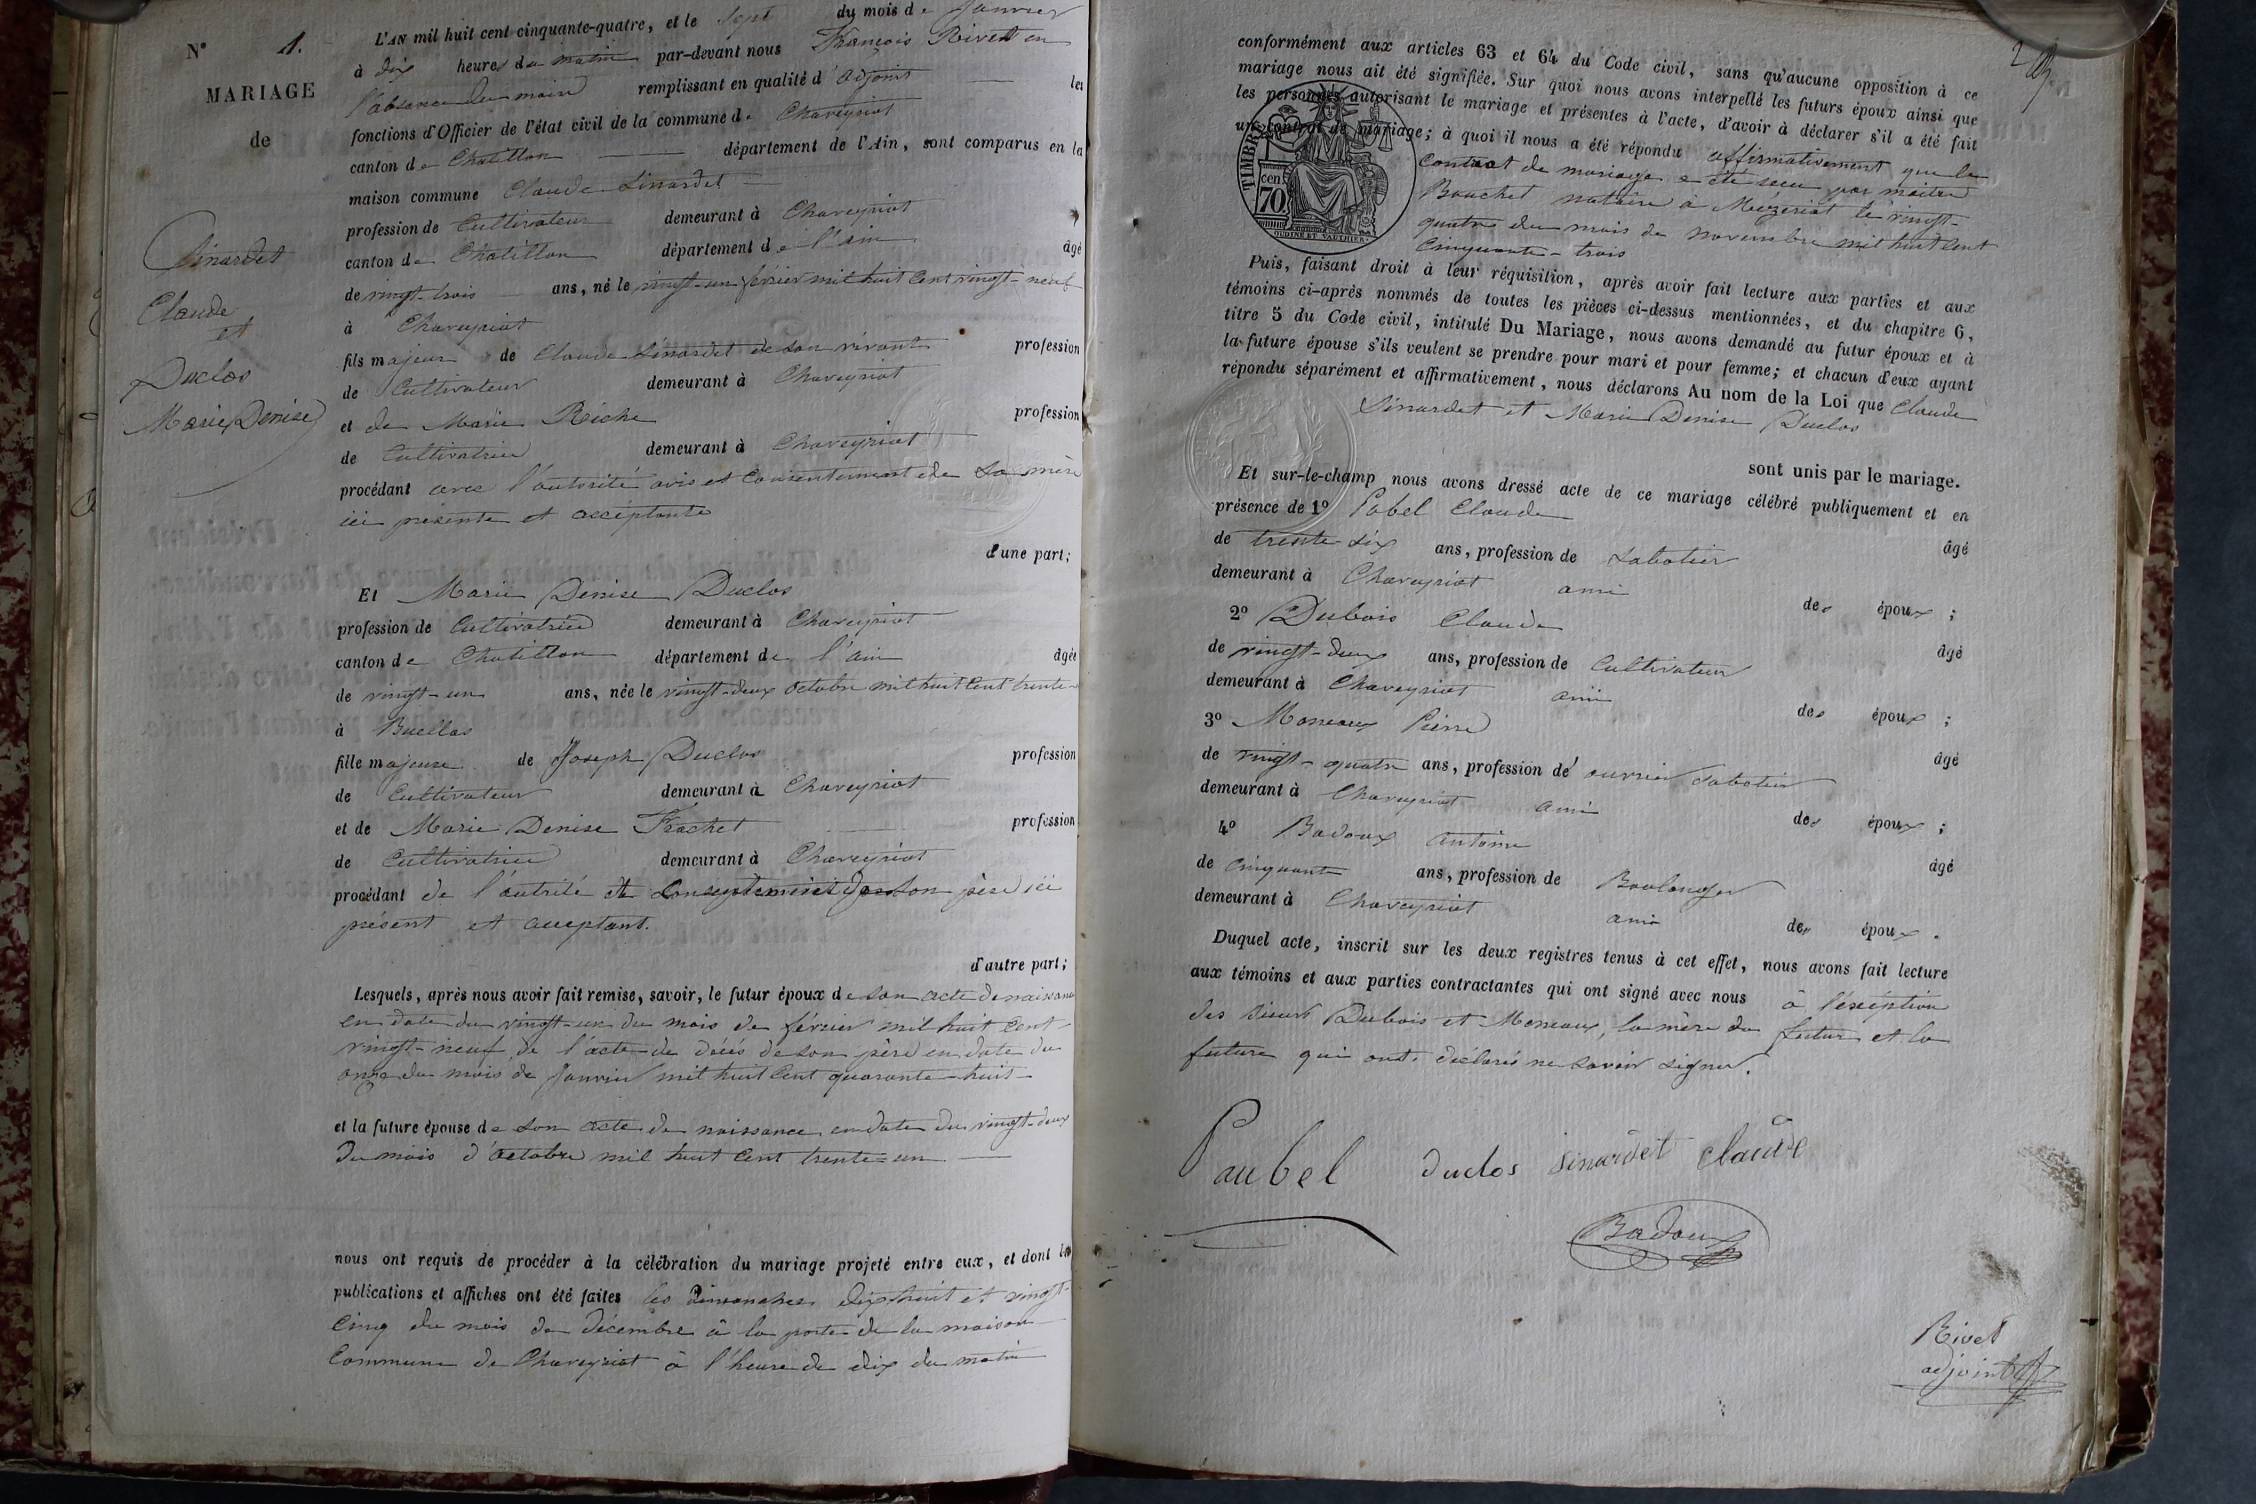 N° 1.
MARIAGE
de
Sinardet
Claude
et
Duclos
Marie Denise
L'AN mil huit cent cinquante-quatre, et le sept du mois de Janvier
à dix heures du matin par-devant nous François Rivet en
l'absence du maire remplissant en qualité d'adjoint les
fonctions d'Officier de l'état civil de la commune de Chaveyriat
canton de Chatillon département de l'Ain, sont comparus en la
maison commune Claude Sinardet
profession de Cultivateur demeurant à Chaveyriat
canton de Chatillon département de l'ain âgé
de vingt-trois ans, né le vingt-un février mil huit cent vingt-neuf
à Chaveyriat
fils majeur de Claude Sinardet de son vivant profession
de Cultivateur demeurant à Chaveyriat
et de Marie Riche profession
de Cultivatrice demeurant à Chaveyriat
procédant avec l'autorité avis et consentement de sa mère
ici présente et acceptante
d'une part;
Et Marie Denise Duclos
profession de Cultivatrice demeurant à Chaveyriat
canton de Chatillon département de l'ain âgée
de vingt-un ans, née le vingt-deux octobre mil huit cent trente-
à Buellas
fille majeure de Joseph Duclos profession
de Cultivateur demeurant à Chaveyriat
et de Marie Denise Frachet profession
de Cultivatrice demeurant à Chaveyriat
procédant de l'autrité et consentement de son père ici
présent et acceptant.
d'autre part;
Lesquels, après nous avoir fait remise, savoir, le futur époux de son acte de naissance
en date du vingt-un du mois de février mil huit cent
vingt-neuf, de l'acte de décès de son père en date du
onze du mois de Janvier mil huit cent quarante-huit-
et la future épouse de son acte de naissance en date du vingt-deux
du mois d'octobre mil huit cent trente=un
nous ont requis de procéder à la célébration du mariage projeté entre eux, et dont les
publications et affiches ont été faites les dimanches dix huit et vingt-
cinq du mois de décembre à la porte de la maison
commune de Chaveyriat à l'heure de dix du matin
2
conformément aux articles 63 et 64 du Code civil, sans qu'aucune opposition à ce
mariage nous ait été signifiée. Sur quoi nous avons interpellé les futurs époux ainsi que
les personnes autorisant le mariage et présentes à l'acte, d'avoir à déclarer s'il a été fait
un contrat de mariage; à quoi il nous a été répondu affirmativement que le
contrat de mariage a été reçu par maitre
Bouchet notaire à Mezeriat le vingt-
quatre du mois de novembre mil huit cent
cinquante-trois
TIMBRE
cen.
70.
OUDINÉ ET VAUTHIER
Puis, faisant droit à leur réquisition, après avoir fait lecture aux parties et aux
témoins ci-après nommés de toutes les pièces ci-dessus mentionnées, et du chapitre 6,
titre 5 du Code civil, intitulé Du Mariage, nous avons demandé au futur époux et à
la future épouse s'ils veulent se prendre pour mari et pour femme; et chacun d'eux ayant
répondu séparément et affirmativement, nous déclarons Au nom de la Loi que Claude
Sinardet et Marie Denise Duclos
sont unis par le mariage.
Et sur-le-champ nous avons dressé acte de ce mariage célébré publiquement et en
présence de 1° Pobel Claude âgé
de trente-six ans, profession de Sabotier
demeurant à Chaveyriat ami des époux ;
2° Dubois Claude âgé
de vingt-deux ans, profession de Cultivateur
demeurant à Chaveyriat ami des époux ;
3° Moneaux Pierre âgé
de vingt-quatre ans, profession de ouvrier sabotier
demeurant à Chaveyriat ami des époux ;
4° Badoux antoine âgé
de cinquante ans, profession de Boulanger
demeurant à Chaveyriat ami des époux .
Duquel acte, inscrit sur les deux registres tenus à cet effet, nous avons fait lecture
aux témoins et aux parties contractantes qui ont signé avec nous à l'éxéption
des sieurs Dubois et Moneaux, la mère du futur et la
future qui ont déclaré ne savoir signer.
Paubel duclos Sinardet Claude
Badoux
Rivet
adjoint